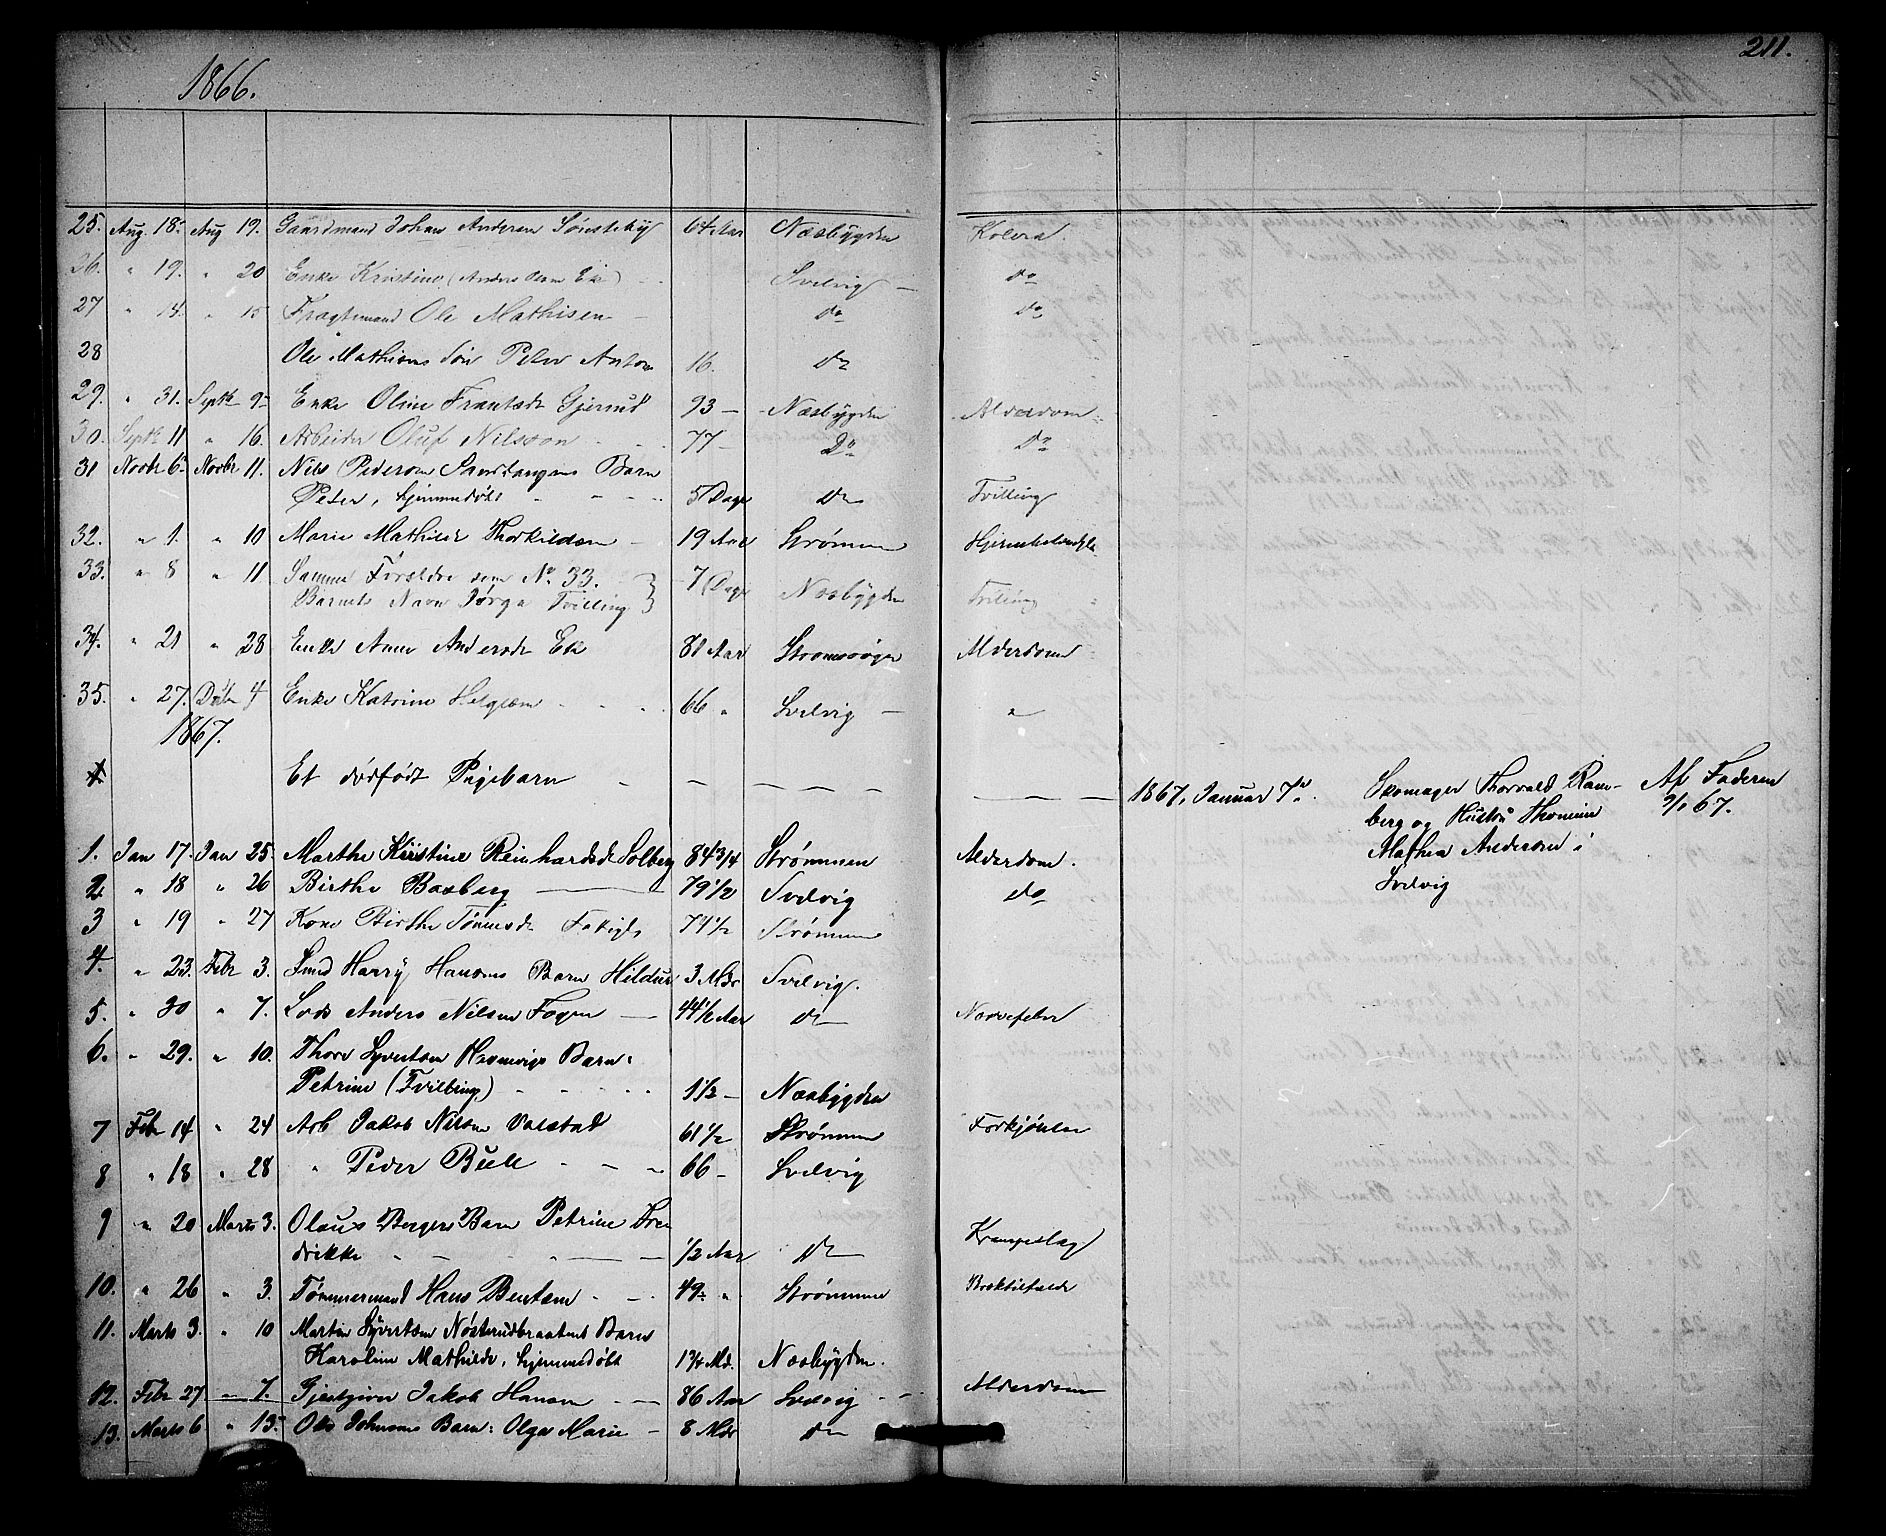 211.
1866.
25. Aug. 18. Aug 19. Gaardmand Johan Andersen Sønsteby 64 Aar Næsbygden Kolera.
26. " 19. " 20 Enke Kristine (Anders Ek) Svelvig do
27 " 14. " 15 Fragtemand Ole Mathisen do do
28 Ole Mathisens Søn Peter Anton 16. do
29. " 31. Septb 9 Enke Oline Frantsdr Gjerud 93 Næsbygden Alderdom
30. Septb 11 " 16. Arbeider Oluf Nilsson 77 Do do
31 Novbr 6 Novbr 11. Nils Pedersen Sandtangens Barn
Peter, hjemmedøbt 5 Dage do Tvilling
32. " 1. " 10 Marie Mathilde Thorkildsen 19 Aar Strømmen
33. " 8 " 11 Samme Forældre som No 33.
Barnets Navn Jørgen Tvilling 7 Dage Næsbygden Tvilling
34. " 21 " 28 Enke Anne Andersdr Ek 81 Aar Alderdom
35. " 27. Decbr 4 Enke Katrine Helgesen 66 " Svelvig "
1867.
1. Et dødfødt Pigebarn 1867, Januar 7de. Skomager Thorvald Ram-
berg og Hustru Thomine
Mathea Andersen i
Svelvig
Af Faderen
9/1 67.
1. Jan 17. Jan 25. Marthe Kristine Reinhardsdr Solberg 84 3/4 Strømmen Alderdom.
2 " 18 " 26 Birthe Boxberg 79 1/2 Svelvig do
3 " 19 " 27 Kone Birthe Tønnesdr 74 1/2 Strømmen
4. " 23. Febr 3. Harry Hansens Barn Hildur 3 Mdr Svelvig.
5. " 30 " 7. Lods Anders Nilsen Fogen 44 1/2 Aar do Nervefeber
6. " 29. " 10. Thore Syvertsen Barn:
Petrine (Tvilling) 1 1/2 Næsbygden
7 Febr 14 " 24 Arb Jakob Nilsen Valstad 61 1/2 Strømmen Forkjølelse
8 " 18 " 28 " Peder Bull 66 Svelvig
9 " 20 Marts 3. Olaus Bergers Barn Petrine Fre-
drikke 1/2 Aar do Krampeslag
10. " 26 " 3. Tømmermand Hans Bentsen 49 " Strømmen Broktilfælde
11. Marts 3. " 10 Martin Syvertsen Nøsterudbraatens Barn
Karoline Mathilde, hjemmedøbt 1 3/4 Md. Næsbygden.
12. Febr 27 " 7. Gjestgiver Jakob Hansen 86 Aar Svelvig Alderdom
13. Marts 6 " 13. Ole Johnsens Barn: Olga Marie 8 Mdr do